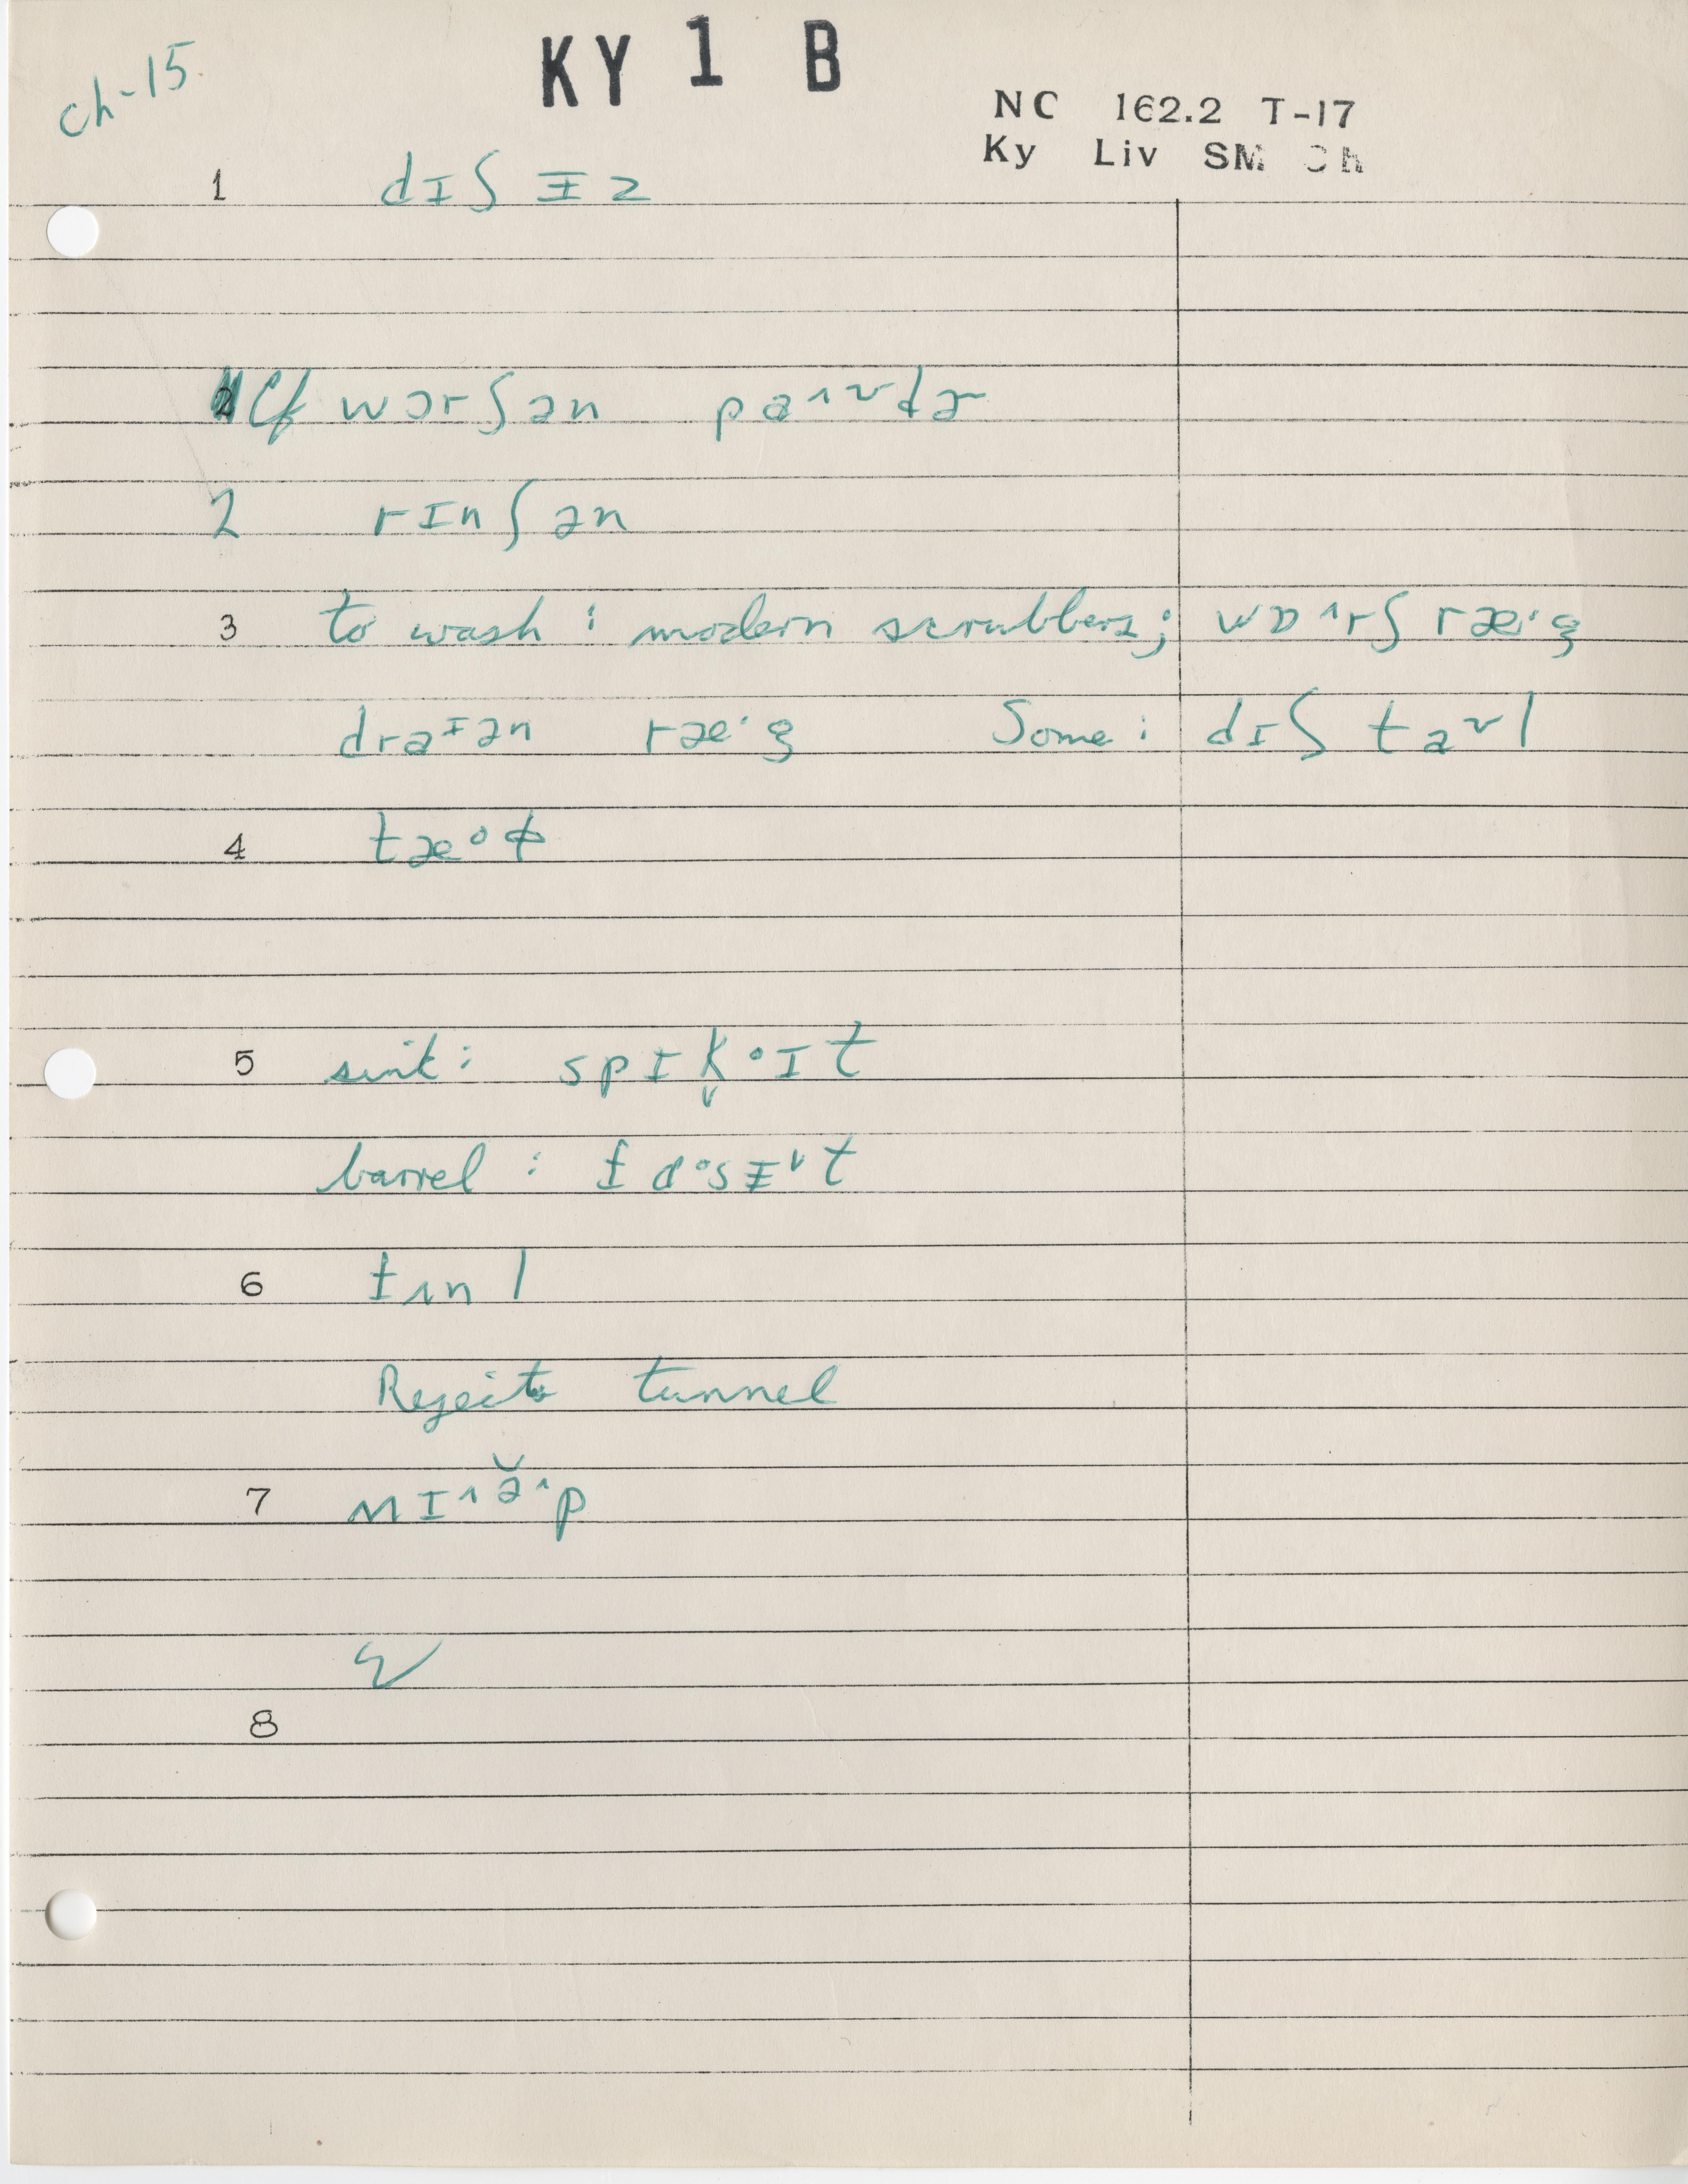 ch-15
KY 1 B
NC 162.2 T-17
Ky Liv SM Ch
1 dɪʃ ɪz
Cf wɔrʃən paᶺᵛdɚ
2 rɪnʃən
3 to wash: modern scrubbers; wɒ^rʃ ræ·g
draᶦən ræ·g Some: dɪʃ taᵛl
4 tæ°ɸ
5 sink: spɪk̬°ɪt
barrel: fɔ°sɪᵛt
6 tʌnl
Rejects tunnel
7 ʍɪ^ə̆^p
8